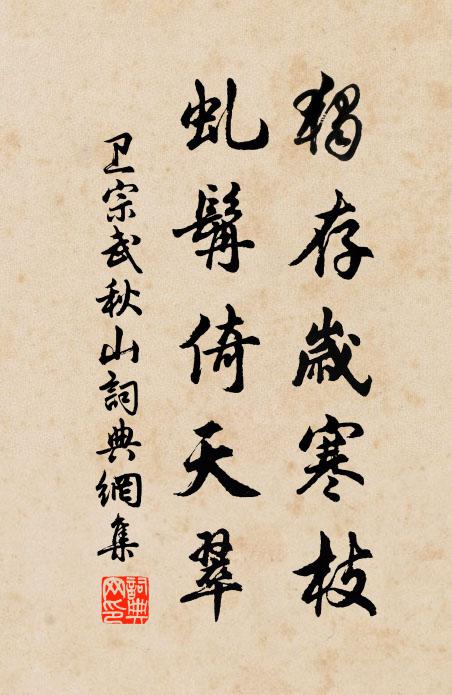 獨存歲寒枝
虬髯倚天翠
卫宗武秋山詞典網集
詞典網印